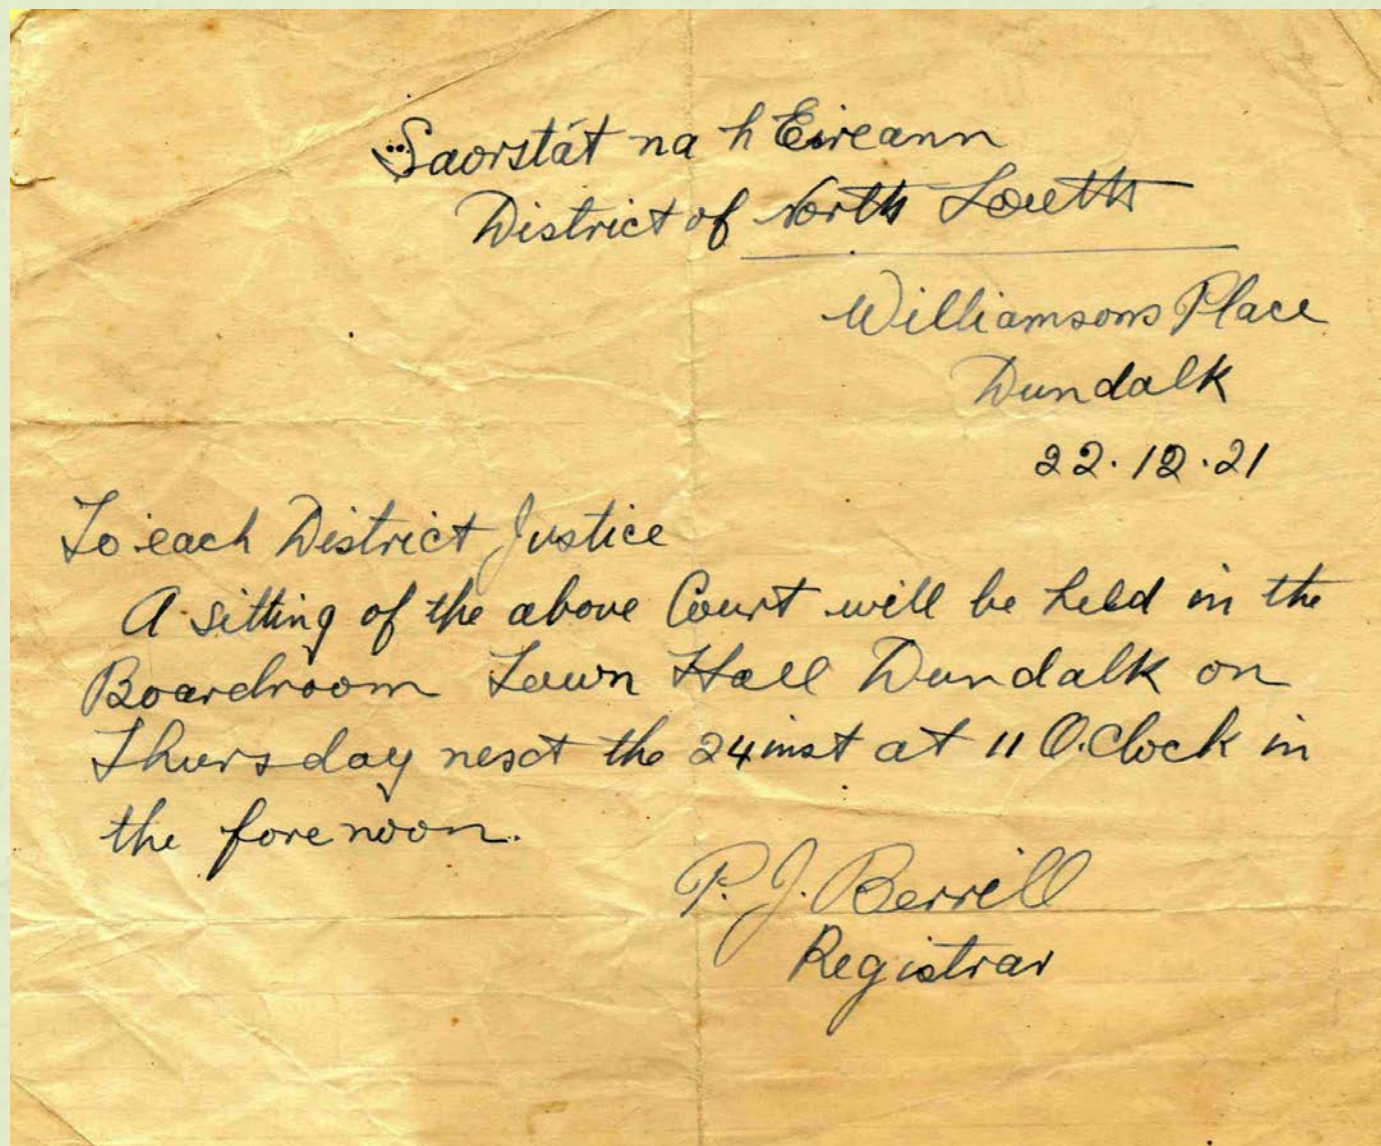 Saorstát na h Eireann
District of North Louth
Williamsons Place
Dundalk
22.12.21
To each District Justice
A sitting of the above Court will be held in the
Boardroom Town Hall Dundalk on
Thursday next the 24 inst at 11 O.Clock in
the forenoon.
P. J. Berrill
Registrar